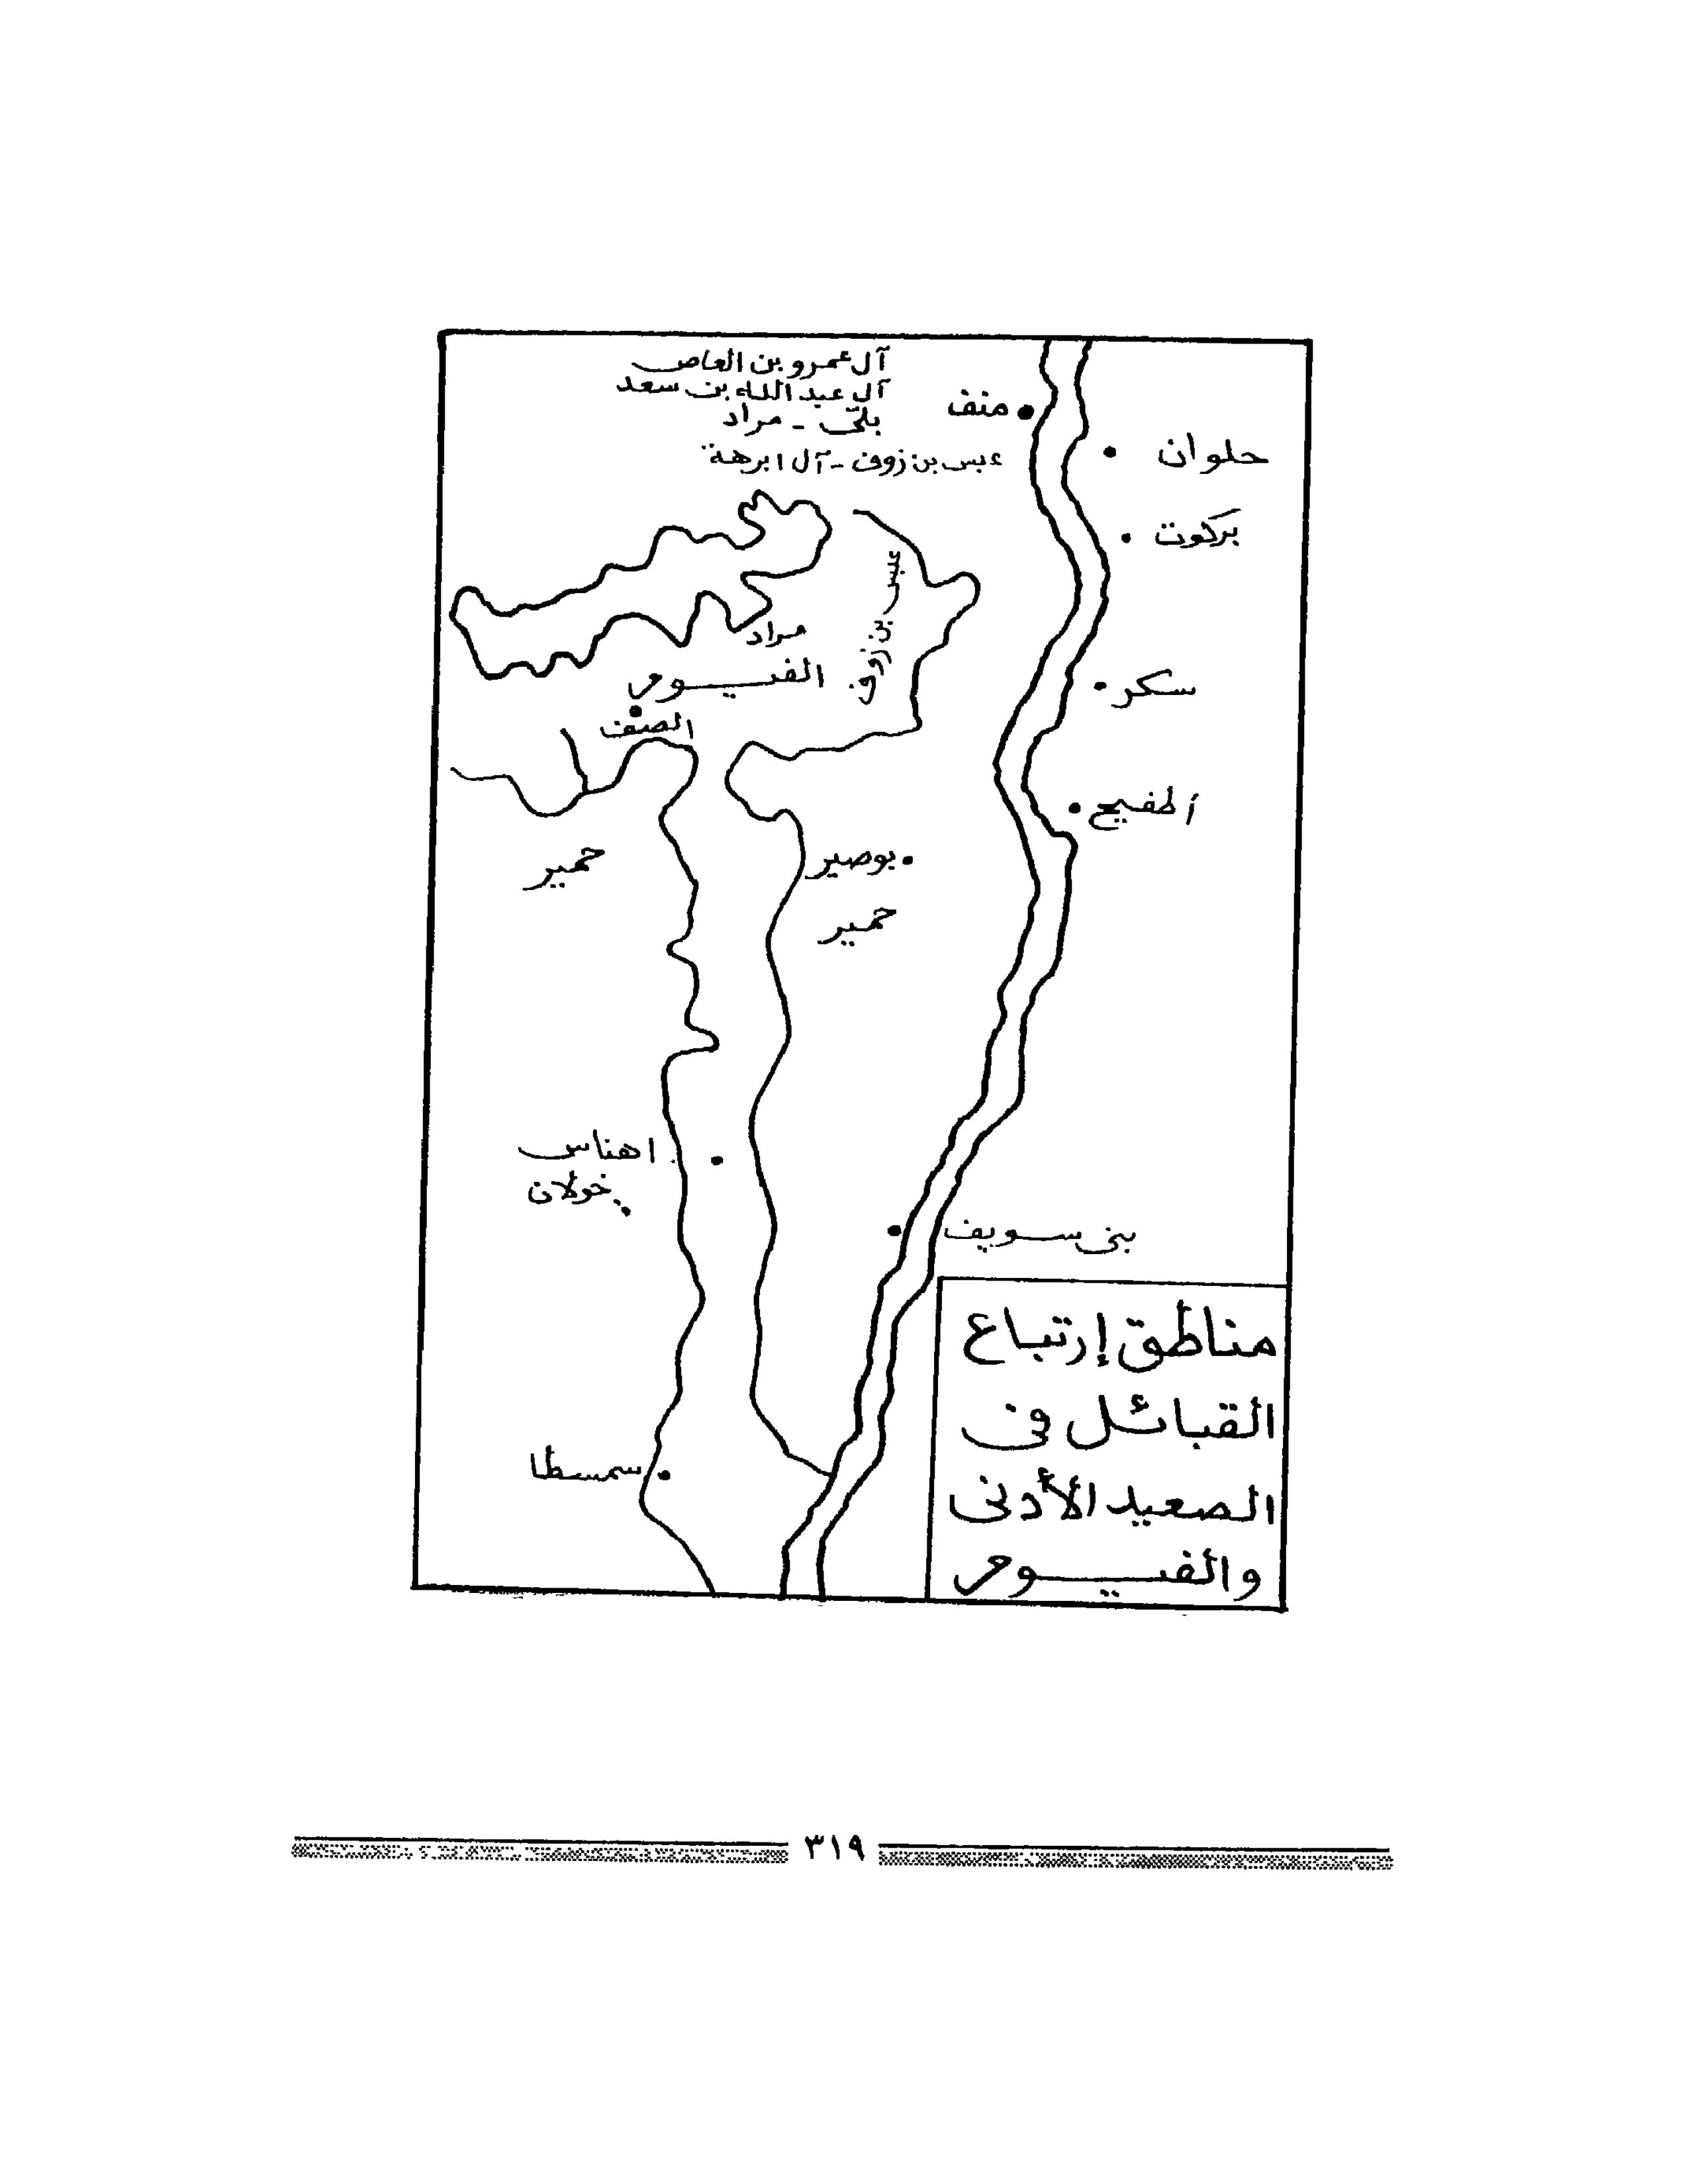 آل عمرو بن العاص
آل عبد الله بن سعد
بلى - مراد
عبس بن زوف - آل ابرهة
منف
حلوان
بركوت
عبس بن زوف
مراد
الفيوم
الصنف
سكر
أطفيح
بوصير
حمير
حمير
اهناس
خولان
بنى سويف
سمسطا
مناطق إرتباع
القبائل فى
الصعيد الأدنى
والفيوم
٣١٩